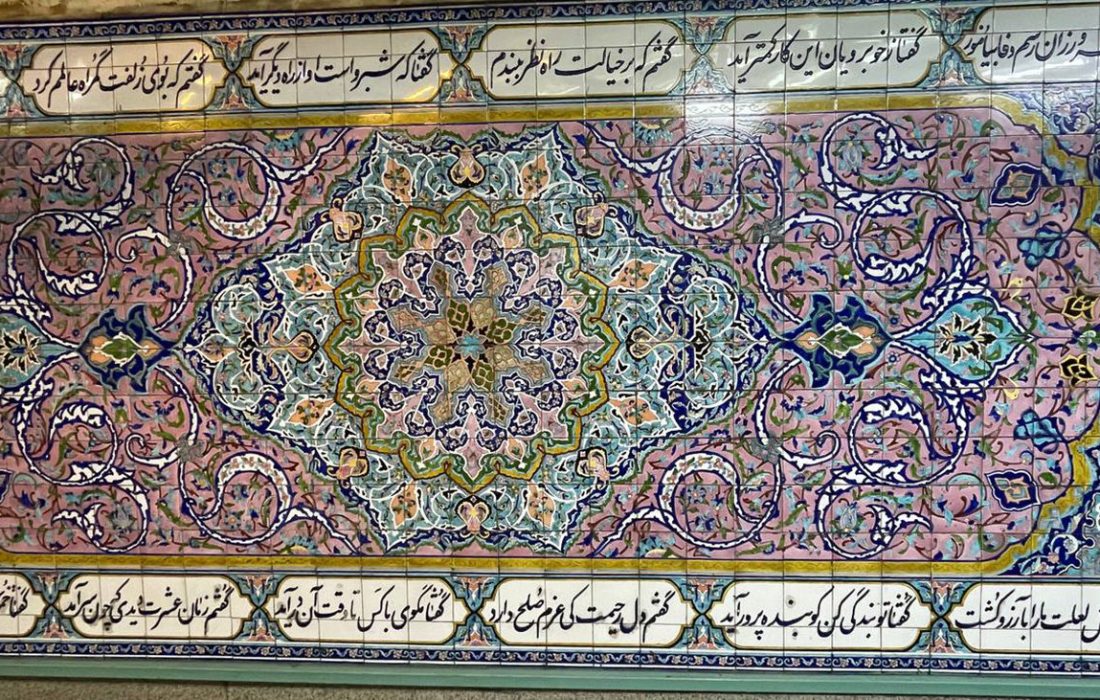 ورزان رسم وفا بیاموز
گفتا ز خوبرویان این کار کمتر آید
گفتم که بر خیالت راه نظر ببندم
گفتا که شبرو است او از راه دیگر آید
گفتم که بوی زلفت گمراه عالمم کرد
لعلت ما را بآرزو کشت
گفتا تو بندگی کن کو بنده پرور آید
گفتم دل رحیمت کی عزم صلح دارد
گفتا مگوی با کس تا وقت آن درآید
گفتم زمان عشرت دیدی که چون سرآمد
گفتا